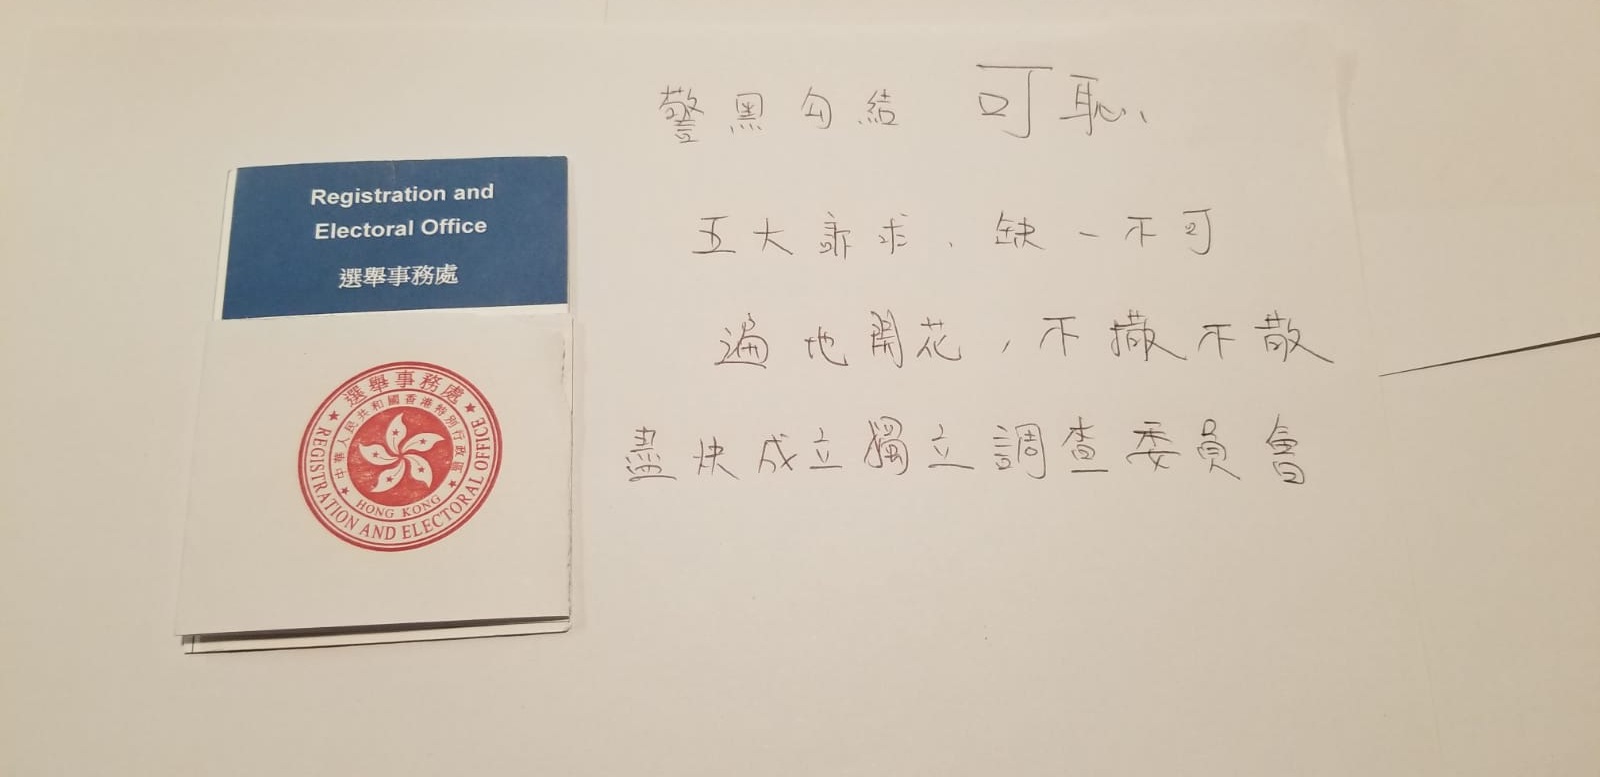 Registration and
Electoral Office
選舉事務處
選舉事務處
中華人民共和國香港特別行政區
HONG KONG
REGISTRATION AND ELECTORAL OFFICE
警黑勾結 可恥、
五大訴求、缺一不可
遍地開花，不撤不散
盡快成立獨立調查委員會